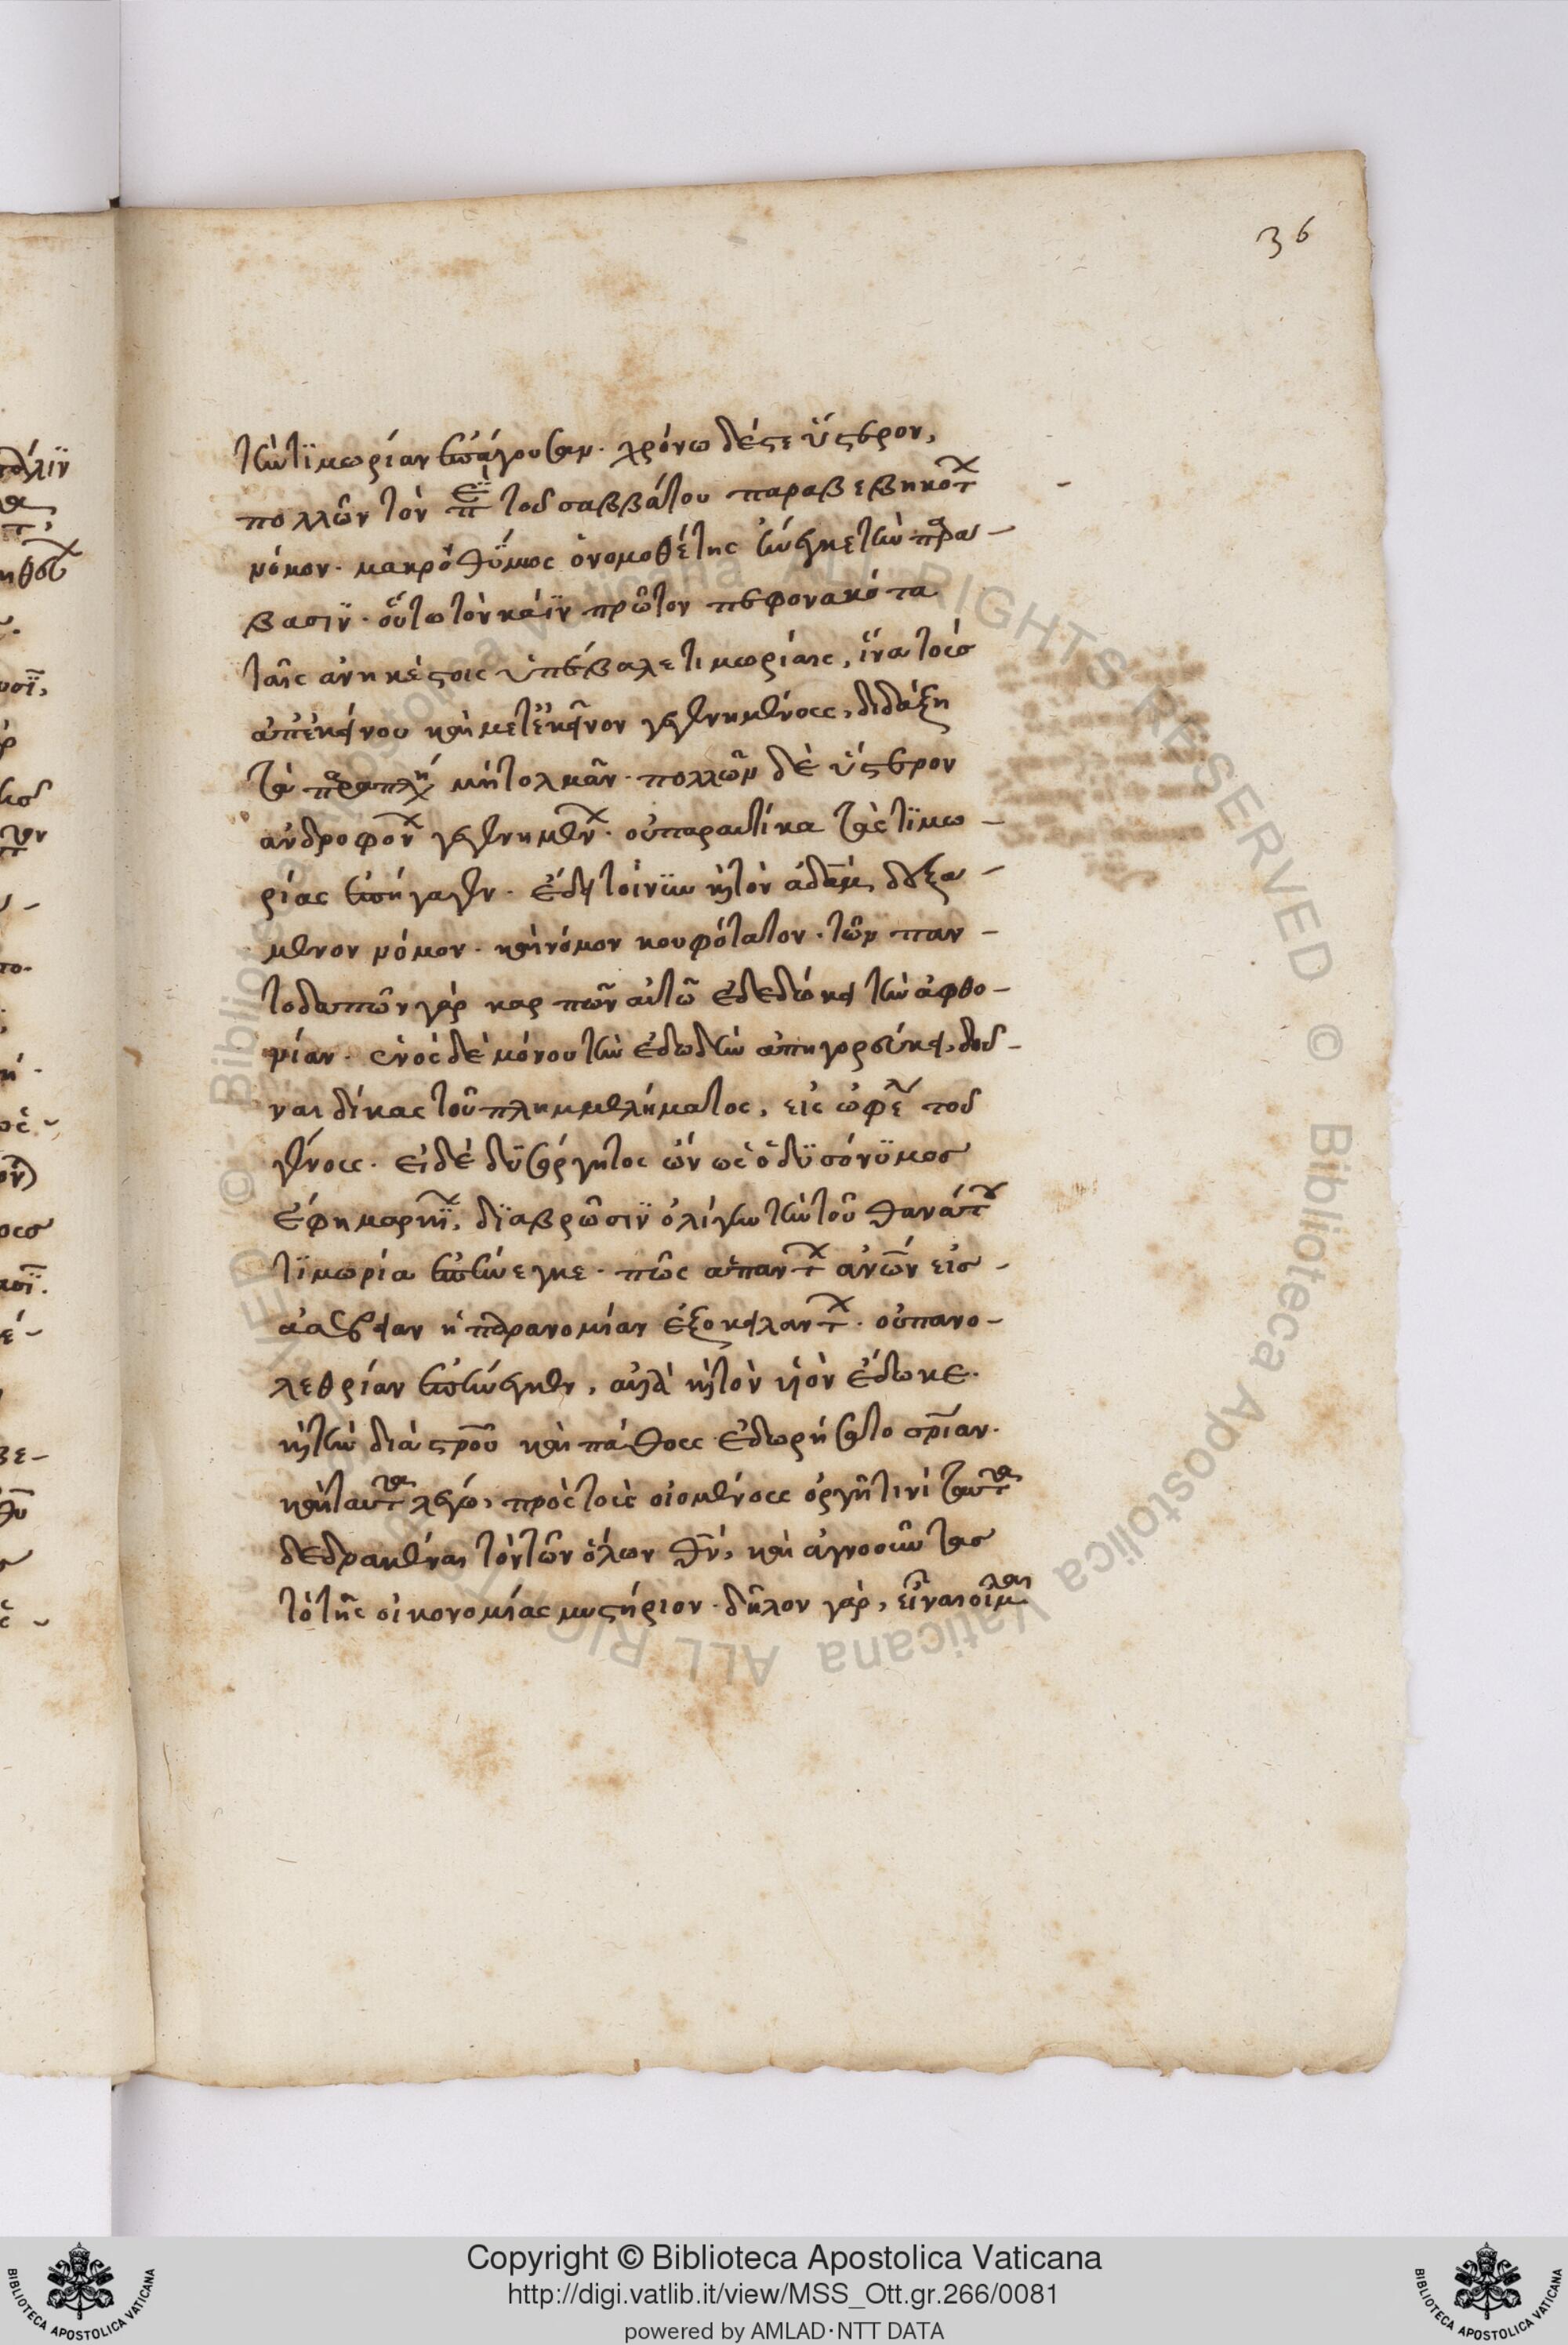 36
τὴν τϊμωρίαν ἐπάγουσαν. χρόνω δέγε ὕστερον,
πολλῶν τὸν περὶ τοῦ σαββάτου παραβεβηκότων
νόμον. μακροθύμως ὁ νομοθέτης ἤνεγκε τὴν παρα-
βασϊν. οὕτω τὸν κάϊν πρῶτον πεφονακότα
ταῖς ἀνηκέστοις ὑπέβαλε τιμωρίαις, ἵνα τοὺς
ἀπ' ἐκείνου καὶ μετ' ἐκεῖνον γεγενημένους, διδάξη
τὰ παραπλή μὴ τολμᾶν. πολλῶν δὲ ὕστερον
ἀνδροφόνων γεγενημένων. οὐ παραυτίκα τὰς τϊμω-
ρίας ἐπήγαγεν. ἔδει τοίνϋν καὶ τὸν ἀδὰμ, δεξα-
μενον νόμον. καὶ νόμον κουφότατον. τῶν παν-
τοδαπῶν γὰρ καρπῶν αὐτῶ ἐδεδώκει τὴν ἀφθο-
νίαν. ἑνὸς δὲ μόνου τὴν ἐδωδὴν ἀπηγορεύκει, δοῦ-
ναι δίκας τοῦ πλημμελήματος, εἰς ὠφέλειαν τοῦ
γένους. εἰ δὲ δϋσόργητος ὢν ὡς ὁ δϋσώνϋμος
ἔφη μαρκίων, δϊὰ βρῶσϊν ὀλίγην τὴν τοῦ θανάτου
τϊμωρία ἐπήνεγκε. πῶς ἁπάντων ἀνων εἰς
ἀσέβειαν ἢ παρανομίαν ἐξοκειλάντων. οὐ πανο-
λεθρίαν ἐπήνεγκεν, ἀλλὰ καὶ τὸν υἱὸν ἔδωκε.
καὶ τὴν διὰ στροῦ καὶ πάθους ἐδωρήσατο σρίαν.
καὶ ταῦτα λέγω, πρὸς τοὺς οἰομένους ὀργῆ τινὶ ταῦτα
δεδρακέναι τὸν τῶν ὅλων θν, καὶ ἀγνοοῦντας
τὸ τῆς οἰκονομίας μυστήριον. δῆλον γὰρ, εἶναι οἶμαι
Copyright © Biblioteca Apostolica Vaticana
http://digi.vatlib.it/view/MSS_Ott.gr.266/0081
powered by AMLAD·NTT DATA